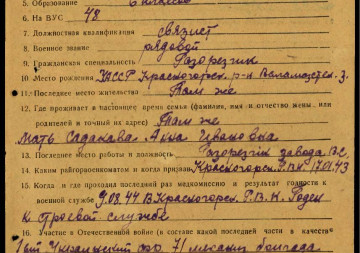 5. Образование 6 классов
6. На ВУС 48
7. Должностная квалификация связист
8. Военное звание рядовой
9. Гражданская специальность Газорезчик
10 Место рождения УАССР Красногорск. р-н
11. Последнее место жительства Там же
12. Где проживает в настоящее время семья (фамилия, имя и отчество жены, или
родителей и точный их адрес) Там же
Мать Садакова Анна Ивановна
13. Последнее место работы и должность Газорезчик завода
14. Каким райгорвоенкоматом и когда призван Красногорск. РВК 17.01.43
15. Когда и где проходил последний раз медкомиссию и результат годности к
военной службе 9.08.44 В Красногорск. Р.В.К. Годен
к строевой службе
16. Участие в Отечественной войне (в составе какой последней части в качестве
1ый Украинский фр. 71 механиз бригада